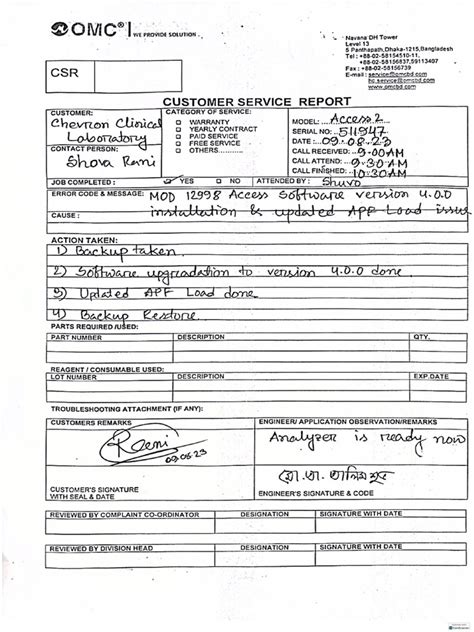 OMC® | WE PROVIDE SOLUTION
Navana DH Tower
Level 13
6 Panthapath, Dhaka-1215, Bangladesh
Tel : +88-02-58154510-11,
+88-02-58156837, 59113407
Fax : +88-02-58156739
E-mail : service@omcbd.com
hc.service@omcbd.com
www.omcbd.com
CSR
CUSTOMER SERVICE REPORT
CUSTOMER:
Chevron Clinical
Laboratory
CONTACT PERSON:
Shova Rani
CATEGORY OF SERVICE:
WARRANTY
YEARLY CONTRACT
PAID SERVICE
FREE SERVICE
OTHERS
MODEL: Access 2
SERIAL NO: 511947
DATE: 09.08.23
CALL RECEIVED: 9:00AM
CALL ATTEND: 9:30AM
CALL FINISHED: 10:30AM
JOB COMPLETED : YES NO ATTENDED BY : Shuvo
ERROR CODE & MESSAGE: MOD 12998 Access Software version 4.0.0
CAUSE : installation & updated APF Load issue
ACTION TAKEN:
1) Backup taken
2) Software upgradation to version 4.0.0 done.
3) Updated APF Load done.
4) Backup Restore.
PARTS REQUIRED /USED:
PART NUMBER DESCRIPTION QTY.
REAGENT / CONSUMABLE USED:
LOT NUMBER DESCRIPTION EXP.DATE
TROUBLESHOOTING ATTACHMENT (IF ANY):
CUSTOMERS REMARKS
Rani
CUSTOMER'S SIGNATURE
WITH SEAL & DATE
ENGINEER/ APPLICATION OBSERVATION/REMARKS
Analyzer is ready now
ENGINEER'S SIGNATURE & CODE
REVIEWED BY COMPLAINT CO-ORDINATOR DESIGNATION SIGNATURE WITH DATE
REVIEWED BY DIVISION HEAD DESIGNATION SIGNATURE WITH DATE